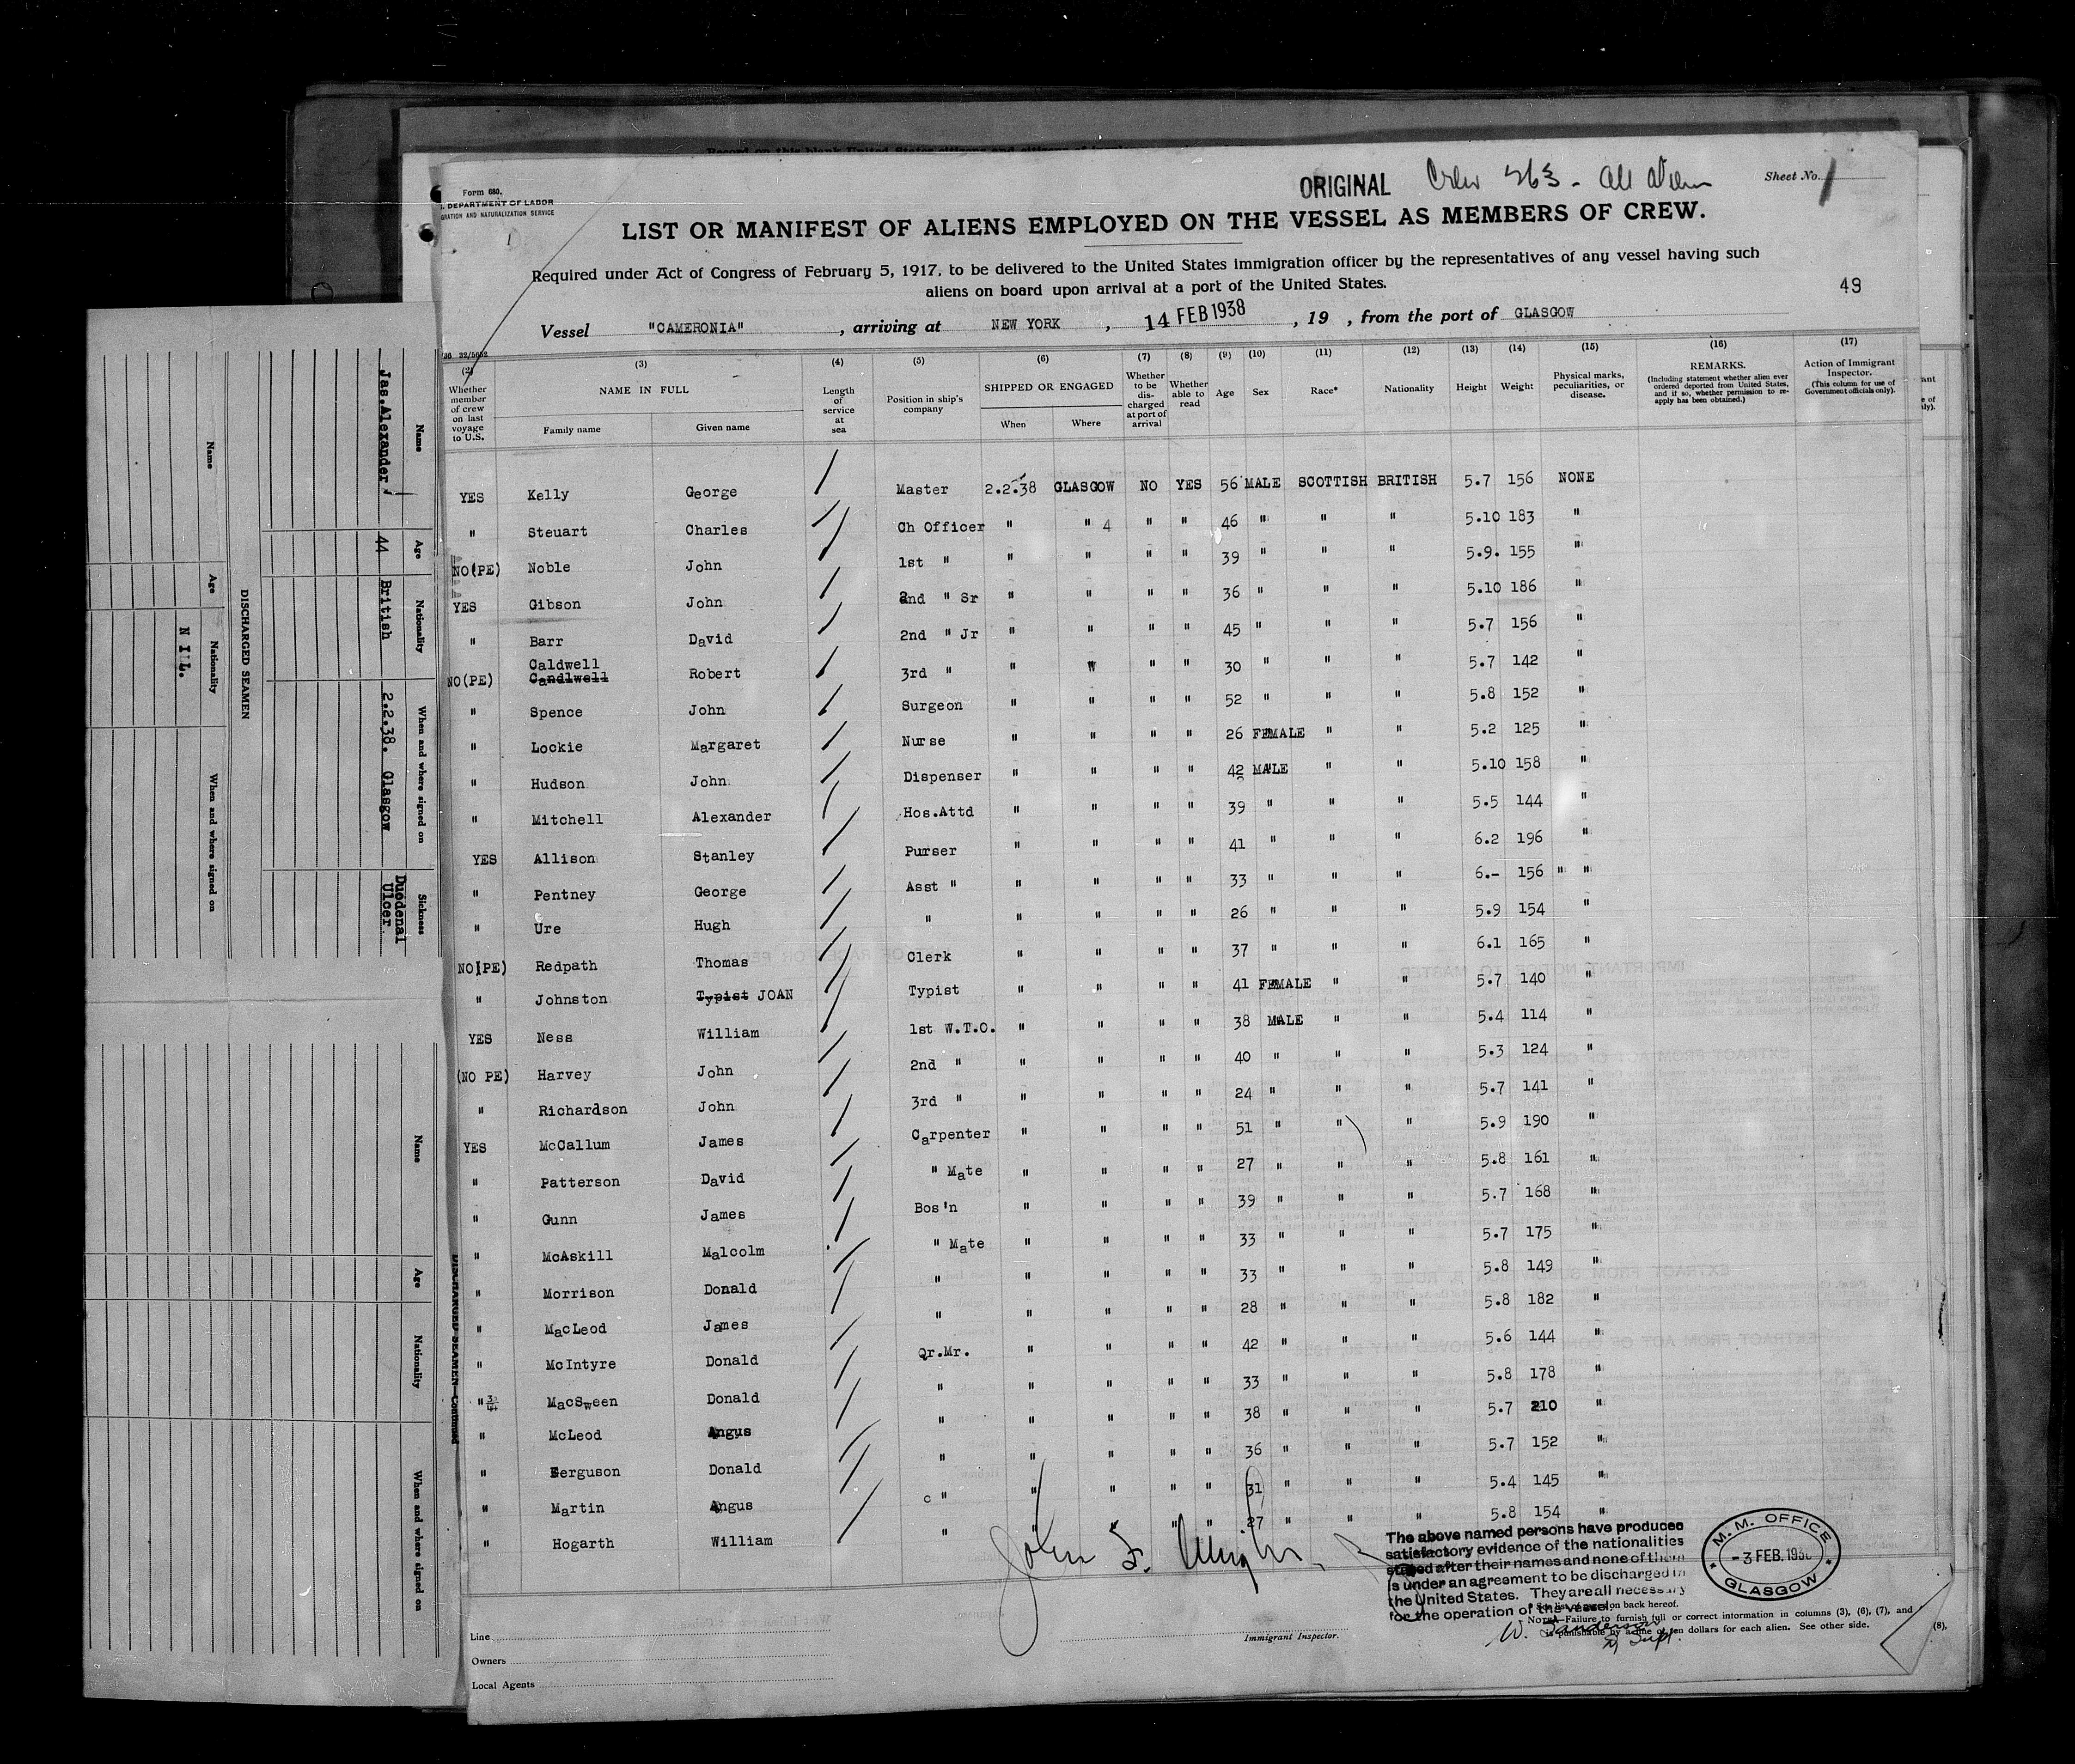 Form 680.
. DEPARTMENT OF LABOR
GRATION AND NATURALIZATION SERVICE
ORIGINAL Crew 363 - All Alien
Sheet No. 1
LIST OR MANIFEST OF ALIENS EMPLOYED ON THE VESSEL AS MEMBERS OF CREW.
Required under Act of Congress of February 5, 1917, to be delivered to the United States immigration officer by the representatives of any vessel having such
aliens on board upon arrival at a port of the United States.
49
Vessel "CAMERONIA", arriving at NEW YORK, 14 FEB 1938, 19 , from the port of GLASGOW
(2) Whether member of crew on last voyage to U.S.
(3) NAME IN FULL Family name Given name
(4) Length of service at sea
(5) Position in ship's company
(6) SHIPPED OR ENGAGED When Where
(7) Whether to be discharged at port of arrival
(8) Whether able to read
(9) Age
(10) Sex
(11) Race*
(12) Nationality
(13) Height
(14) Weight
(15) Physical marks, peculiarities, or disease.
(16) REMARKS. (Including statement whether alien ever ordered deported from United States, and if so, whether permission to reapply has been obtained.)
(17) Action of Immigrant Inspector. (This column for use of Government officials only).
YES Kelly George Master 2.2.38 GLASGOW NO YES 56 MALE SCOTTISH BRITISH 5.7 156 NONE
" Steuart Charles Ch Officer " " 4 " " 46 " " " 5.10 183 "
NO(PE) Noble John 1st " " " " " 39 " " " 5.9. 155 "
YES Gibson John 2nd " Sr " " " " 36 " " " 5.10 186 "
" Barr David 2nd " Jr " " " " 45 " " " 5.7 156 "
NO(PE) Caldwell Candlwell Robert 3rd " " " " " 30 " " " 5.7 142 "
" Spence John Surgeon " " " " 52 " " " 5.8 152 "
" Lockie Margaret Nurse " " " " 26 FEMALE " " 5.2 125 "
" Hudson John Dispenser " " " " 42 MALE " " 5.10 158 "
" Mitchell Alexander Hos.Attd " " " " 39 " " " 5.5 144 "
YES Allison Stanley Purser " " " " 41 " " " 6.2 196 "
" Pentney George Asst " " " " " 33 " " " 6.- 156 " "
" Ure Hugh " " " " " 26 " " " 5.9 154 "
NO(PE) Redpath Thomas Clerk " " " " 37 " " " 6.1 165 "
" Johnston Typist JOAN Typist " " " " 41 FEMALE " " 5.7 140 "
YES Ness William 1st W.T.O. " " " " 38 MALE " " 5.4 114 "
(NO PE) Harvey John 2nd " " " " " 40 " " " 5.3 124 "
" Richardson John 3rd " " " " " 24 " " " 5.7 141 "
YES McCallum James Carpenter " " " " 51 " " " 5.9 190 "
" Patterson David " Mate " " " " 27 " " " 5.8 161 "
" Gunn James Bos'n " " " " 39 " " " 5.7 168 "
" McAskill Malcolm " Mate " " " " 33 " " " 5.7 175 "
" Morrison Donald " " " " " 33 " " " 5.8 149 "
" MacLeod James " " " " " 28 " " " 5.8 182 "
" McIntyre Donald Qr.Mr. " " " " 42 " " " 5.6 144 "
" MacSween Donald " " " " " 33 " " " 5.8 178 "
" McLeod Angus " " " " " 38 " " " 5.7 210 "
" Ferguson Donald " " " " " 36 " " " 5.7 152 "
" Martin Angus c " " " " " 31 " " " 5.4 145 "
" Hogarth William " " " " " 27 " " " 5.8 154 "
The above named persons have produced
satisfactory evidence of the nationalities
stated after their names and none of them
is under an agreement to be discharged in
the United States. They are all necessary
for the operation of the vessel.
M. M. OFFICE
- 3 FEB. 193
GLASGOW
* See list of races on back hereof.
NOTE—Failure to furnish full or correct information in columns (3), (6), (7), and (8),
is punishable by a fine of ten dollars for each alien. See other side.
W. Sanderson
Supt.
Line
Owners
Local Agents
Immigrant Inspector.
Name Age Nationality When and where signed on Sickness
Jas.Alexander 44 British 2.2.38. Glasgow Duodenal Ulcer.
DISCHARGED SEAMEN
Name Age Nationality When and where signed on
N I L.
DISCHARGED SEAMEN—Continued
Name Age Nationality When and where signed on